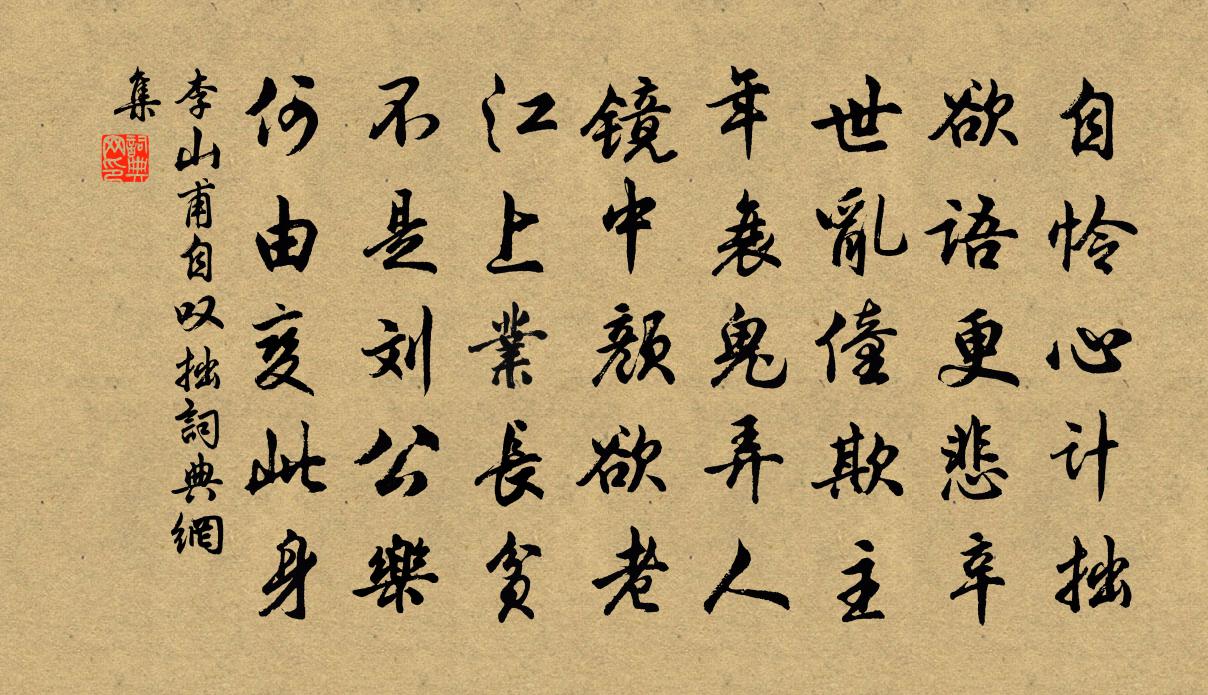 自怜心计拙
欲语更悲辛
世亂僮欺主
年衰鬼弄人
镜中颜欲老
江上業長贫
不是刘公樂
何由变此身
李山甫自叹拙詞典網
集
詞典
网印